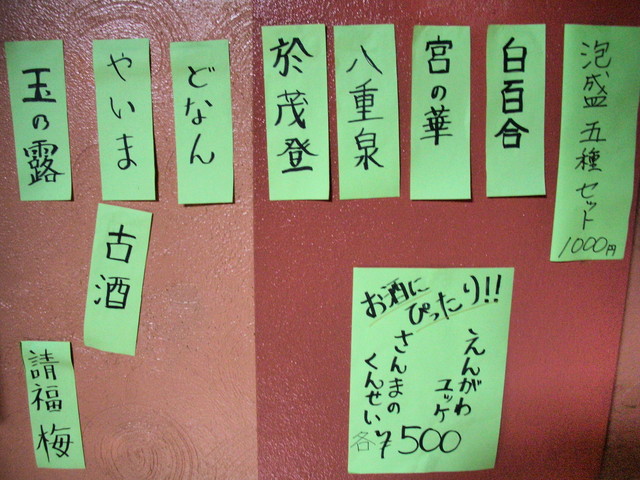 泡盛 五種セット
1000円
白百合
宮の華
八重泉
於茂登
どなん
やいま
玉の露
古酒
請福梅
お酒に
ぴったり!!
えんがわ
ユッケ
さんまの
くんせい
各¥500